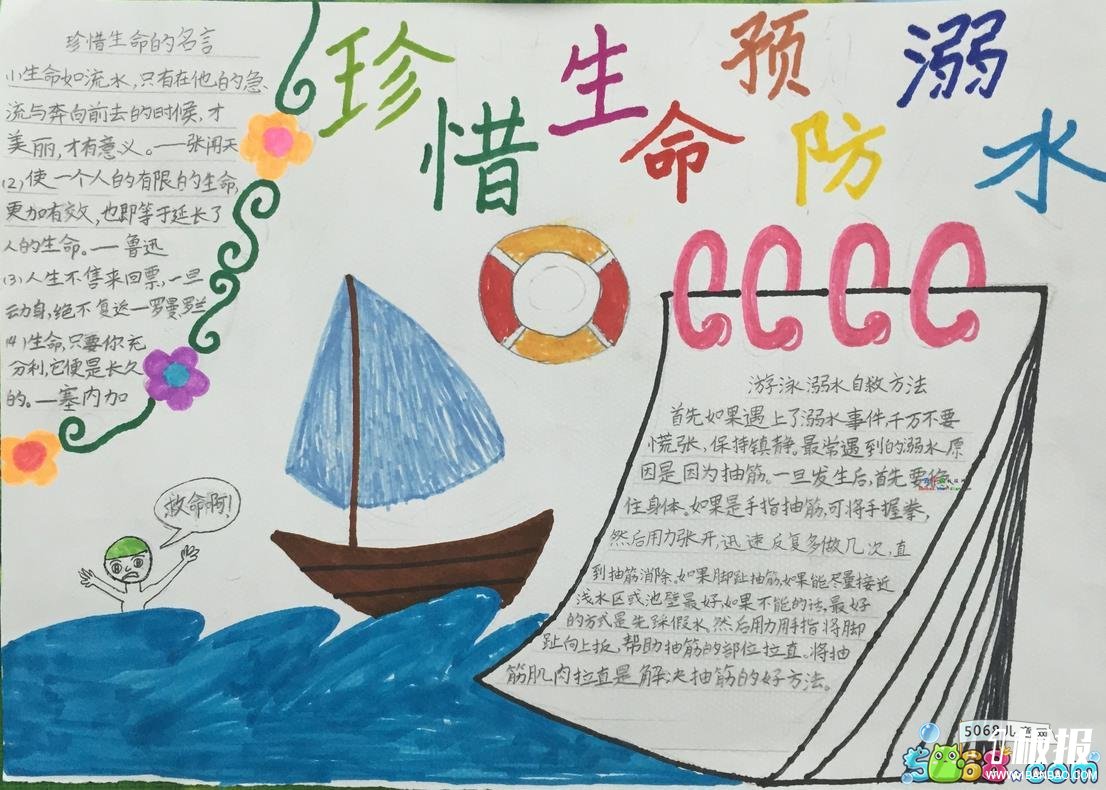 珍惜生命 预防溺水
珍惜生命的名言
小生命如流水,只有在他的急
流与奔向前去的时候,才
美丽,才有意义。——张闻天
(2)使一个人的有限的生命,
更加有效,也即等于延长了
人的生命。——鲁迅
(3)人生不售来回票,一旦
动身,绝不复返—罗曼罗兰
(4)生命,只要你充
分利,它便是长久
的。—塞内加
救命啊!
游泳溺水自救方法
首先如果遇上了溺水事件,千万不要
慌张,保持镇静。最常遇到的溺水原
因是因为抽筋。一旦发生后,首先要
住身体、如果是手指抽筋,可将手握拳,
然后用力张开,迅速反复多做几次,直
到抽筋消除。如果脚趾抽筋,如果能尽量接近
浅水区或池壁最好,如果不能的话,最好
的方式是先踩假水。然后用力用手指将脚
趾向上扳,帮助抽筋的部位拉直。将抽
筋肌肉拉直是解决抽筋的好方法。
5068儿童网
板报
5068.com
WWW.1BANBAO.COM